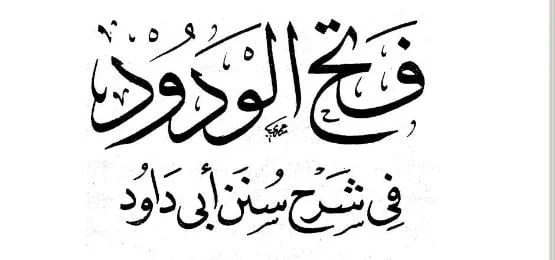 فَتْحُ الْوَدُودِ
فِي شَرْحِ سُنَن أَبِي دَاوُد